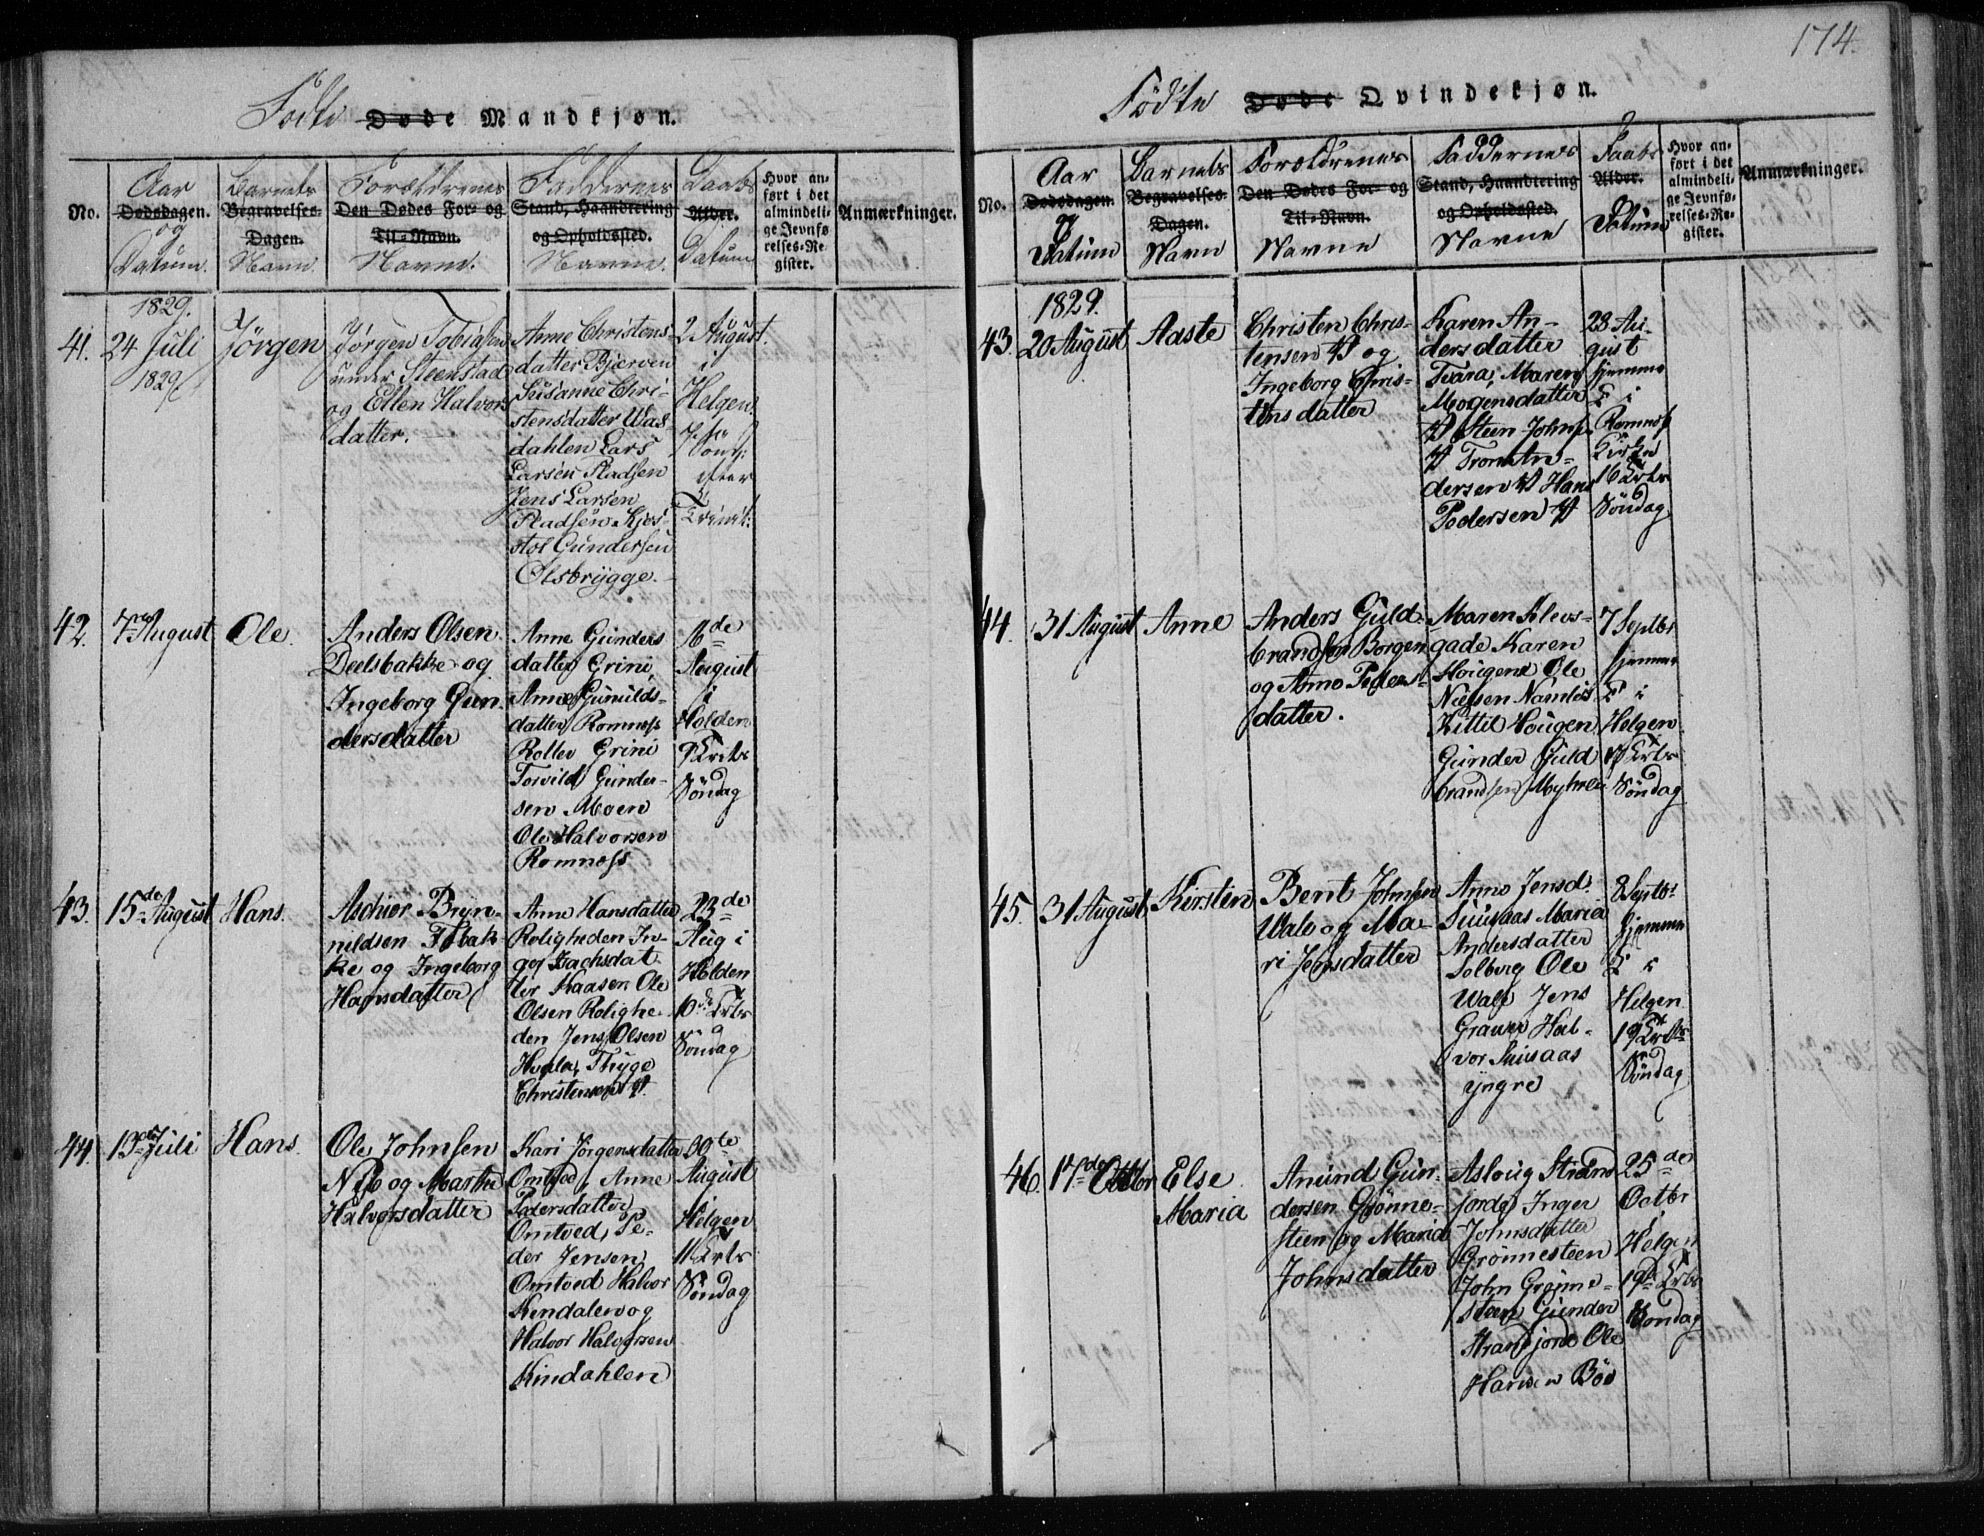 174.
Födte Døde Mandkjøn.
No.
Aar
Dødsdagen.
og
Datum.
Barnets
Begravelses-
Dagen.
Navn.
Forældrenes
Den Dødes For- og
Til-Navn.
Navne.
Faddernes
Stand, Haandtering
og Opholdssted.
Navne.
Daabs
Alder.
Datum
Hvor an-
ført i det
almindeli-
ge Jevnfø
relses-Re
gister.
Anmærkninger.
41.
1829.
24 Juli
1829
Jörgen
Jörgen Tobiassen
under Steenstad
og Ellen Halvors
datter.
Anne Christens-
datter Bjerven
Susanne Chri-
stensdatter Was-
dahlen Lars
Larsen Pladsen
Jens Larsen
Pladsen Kjos-
stol Gundersen
Olsbrygge.
2 August
i
Helgen
7de
Sönd:
efter
Trinit:
42.
7de August
Ole.
Anders Olsen
Deelsbakke og
Ingeborg Gun-
dersdatter
Anne Gunders
datter Grini,
Anne Gunilds-
datter Romness
Rollev Grini
Torvild Gunder-
sen Moen
Ole Halvorsen
Romness
16de
August
i
Holden
9 Trtis
Söndag
43.
15de August
Hans.
Aschier Bryn-
nildsen Tbak-
ke og Ingeborg
Hansdatter
Anne Hansdatter
Roligheden In-
ger Isachsdat
ter Kaasen Ole
Olsen Rolighe-
den Jens Olsen
Hvala, Thyge
Christensen
23de
Aug i
Holden
10de Trts
Söndag
44.
13de Juli
Hans.
Ole Johnsen
Næs og Marthe
Halvorsdatter
Kari Jörgensdatter
Omtved, Anne
Pedersdatter
Omtved, Pe-
der Jensen
Omtved Halvor
Kindalen og
Halvor Halvorsen
Kindahlen
30te
August
i
Helgen
11 Trts
Söndag
Födte Døde Qvindekjøn.
No.
Aar
Dødsdagen.
og
Datum
Barnets
Begravelses-
Dagen.
Navn
Forældrenes
Den Dødes For- og
Til-Navn.
Navne
Faddernes
Stand, Haandtering
og Opholdssted.
Navne
Daabs
Alder.
Datum
Hvor an-
ført i det
almindeli-
ge Jevnfø-
relses-Re-
gister.
Anmærkninger.
43.
1829.
20 August
Aaste
Christen Chris-
tensen og
Ingeborg Chris-
tens datter
Karen An-
dersdatter
Tvara, Maren
Mogensdatter
Steen Johns.
Tron An-
dersen Hans
Pedersen
28 Au-
gust
hjemme
i
Romness
Kirke
16 Trts
Söndag
44.
31 August
Anne
Anders Guld-
brandsen Borgen
og Anne Peders-
datter.
Maren Klevs-
gade Karen
Hougene Ole
Nielsen Namlös
Kittil Hougen
Gunder Guld
brandsen Myhrli
7 Septbr
hjemme
i
Helgen
17 Trts
Söndag
45.
31 August
Kirsten
Bent Johnsen
Wale og Ma-
ri Jensdatter
Anne Jensd.
Suusaas Maria
Andersdatter
Solberg Ole
Wale Jens
Graver Hal-
vor Suusaas
yngre
8 Septbr
hjemme
i
Helgen
19 Trts
Söndag
46.
17de Octbr
Else
Maria
Anund Gun-
dersen Grönne-
steen og Maria
Johnsdatter
Asloug Strans-
fjorde, Inger
Johnsdatter
Grönnesteen
John Grönne-
steen Gunder
Stranfjord Ole
Hansen Böe
25de
Octbr
i
Helgen
19de Trts
Söndag